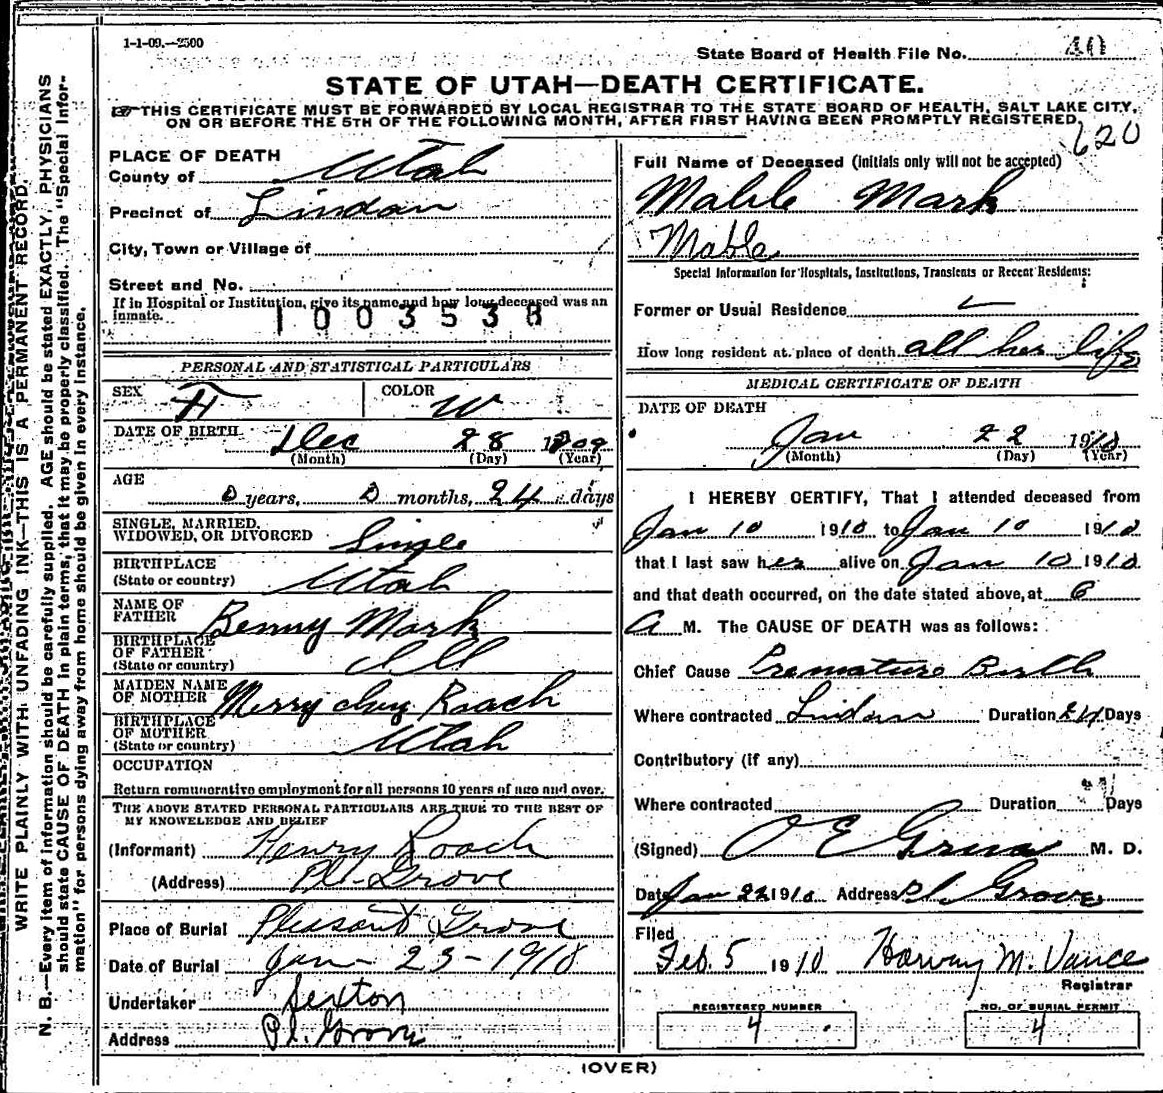 1-1-09.—2500
State Board of Health File No. 40
STATE OF UTAH—DEATH CERTIFICATE.
THIS CERTIFICATE MUST BE FORWARDED BY LOCAL REGISTRAR TO THE STATE BOARD OF HEALTH, SALT LAKE CITY,
ON OR BEFORE THE 5TH OF THE FOLLOWING MONTH, AFTER FIRST HAVING BEEN PROMPTLY REGISTERED.
620
WRITE PLAINLY WITH UNFADING INK—THIS IS A PERMANENT RECORD.
N. B.—Every item of information should be carefully supplied. AGE should be stated EXACTLY, PHYSICIANS
should state CAUSE OF DEATH in plain terms, that it may be properly classified. The "Special Infor-
mation" for persons dying away from home should be given in every instance.
PLACE OF DEATH
County of Utah
Precinct of Lindon
City, Town or Village of
Street and No.
If in Hospital or Institution, give its name and how long deceased was an
inmate.
1003538
PERSONAL AND STATISTICAL PARTICULARS
SEX F COLOR W
DATE OF BIRTH Dec 28 1909
(Month) (Day) (Year)
AGE 0 years, 0 months, 24 days
SINGLE, MARRIED,
WIDOWED, OR DIVORCED Single
BIRTHPLACE
(State or country) Utah
NAME OF
FATHER Benny Mark
BIRTHPLACE
OF FATHER
(State or country) Ill
MAIDEN NAME
OF MOTHER Merry Roach
BIRTHPLACE
OF MOTHER
(State or country) Utah
OCCUPATION
Return remunerative employment for all persons 10 years of age and over.
THE ABOVE STATED PERSONAL PARTICULARS ARE TRUE TO THE BEST OF
MY KNOWELEDGE AND BELIEF
(Informant) Henry Roach
(Address) Pl. Grove
Place of Burial Pleasant Grove
Date of Burial Jan - 23 - 1910
Undertaker Sexton
Address Pl. Grove
Full Name of Deceased (initials only will not be accepted)
Mable Mark
Mable
Special Information for Hospitals, Institutions, Transients or Recent Residents:
Former or Usual Residence
How long resident at place of death all her life
MEDICAL CERTIFICATE OF DEATH
DATE OF DEATH
Jan 22 1910
(Month) (Day) (Year)
I HEREBY CERTIFY, That I attended deceased from
Jan 10 1910 to Jan 10 1910
that I last saw her alive on Jan 10 1910
and that death occurred, on the date stated above, at 6
A M. The CAUSE OF DEATH was as follows:
Chief Cause Premature Birth
Where contracted Lindon Duration 24 Days
Contributory (if any)
Where contracted Duration Days
(Signed) O E Grua M. D.
Date Jan 22 1910 Address Pl. Grove
Filed
Feb. 5 1910 Harvey M. Vance
Registrar
REGISTERED NUMBER
4
NO. OF BURIAL PERMIT
4
(OVER)